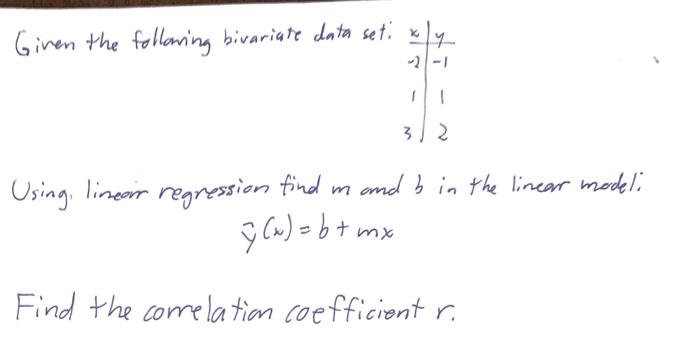 Given the following bivariate data set: x | y
-2 | -1
1 | 1
3 | 2
Using linear regression find m and b in the linear model:
ŷ(x) = b + mx
Find the correlation coefficient r.